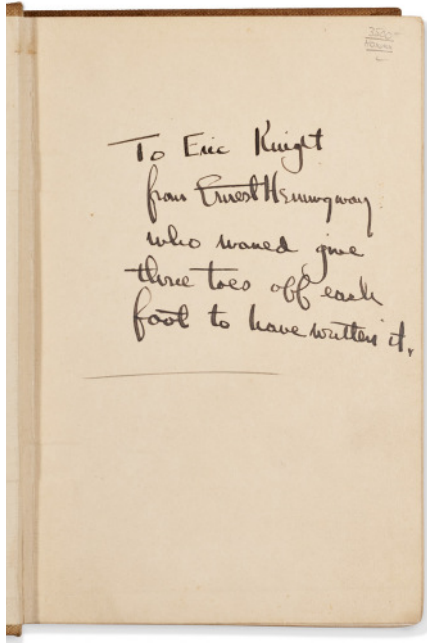 To Eric Knight
from Ernest Hemingway
who would give
three toes off each
foot to have written it.